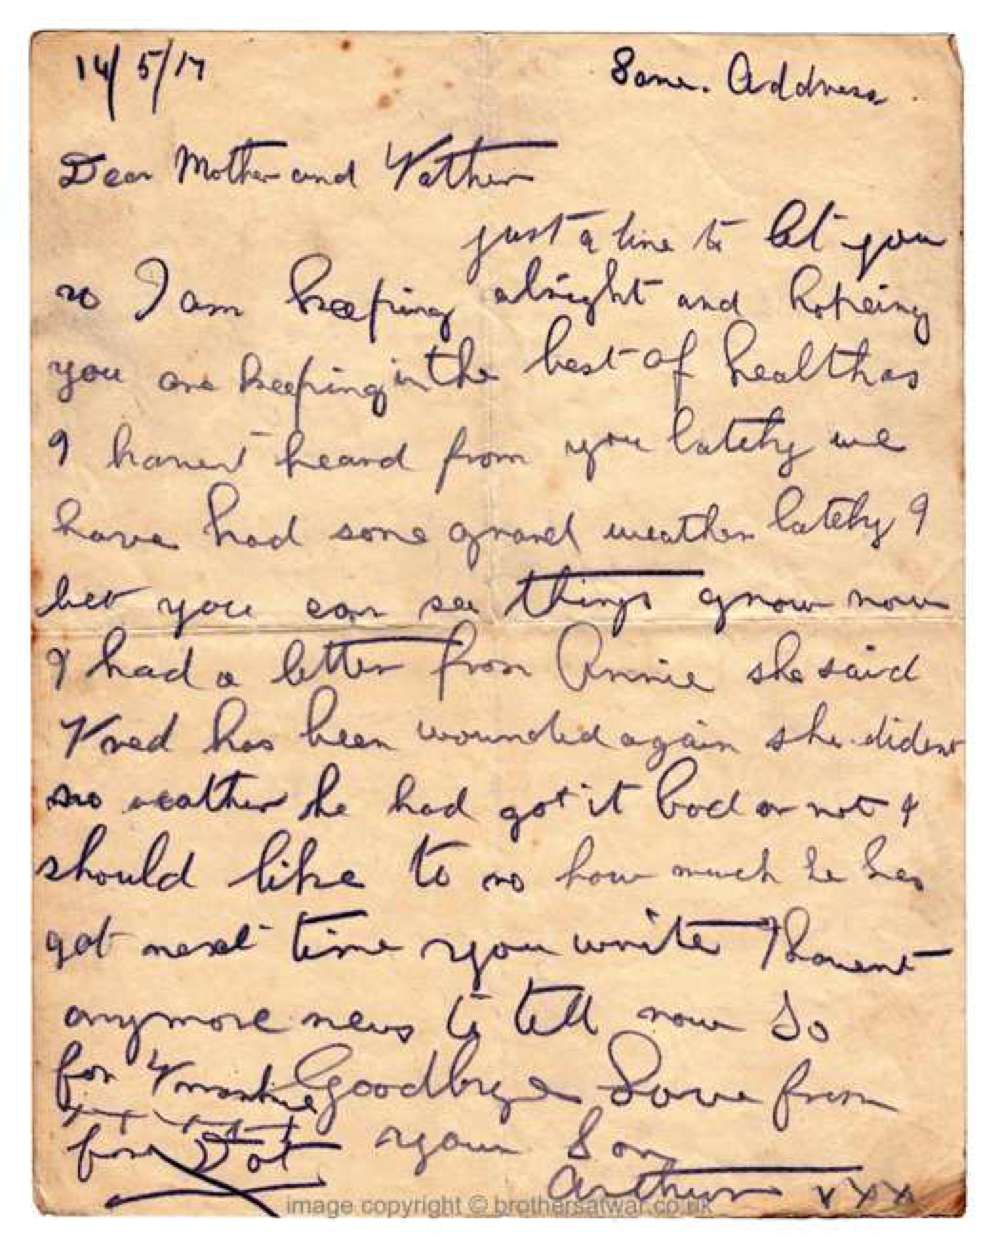 14/5/17 Same. Address.
Dear Mother and Father
just a line to let you
no I am keeping alright and hopeing
you are keeping in the best of health as
I havent heard from you lately we
have had some grand weather lately I
bet you can see things grow now
I had a letter from Annie she said
Fred has been wounded again she dident
no weather he had got it bad or not I
should like to no how much he has
got next time you write I havent
anymore news to tell now So
for Frankie Goodbye Love from
for Dot your Son
Arthur xxx
image copyright © brothersatwar.co.uk